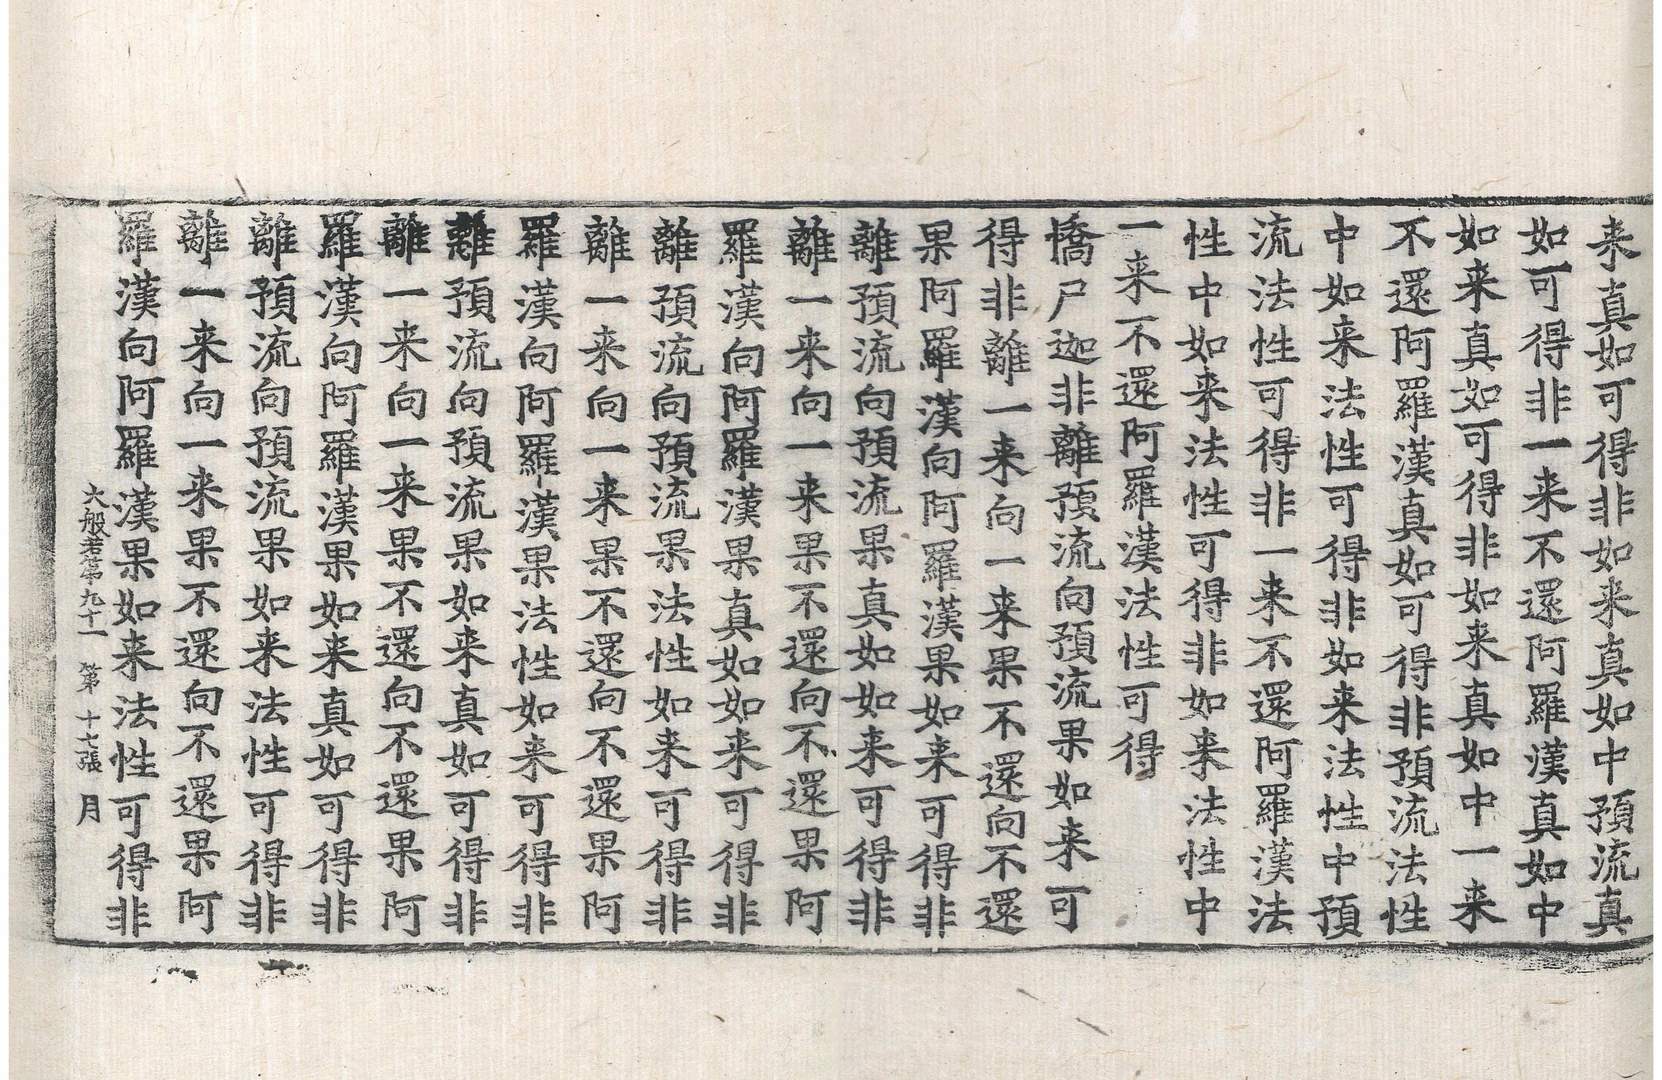 来真如可得非如来真如中預流真
如可得非一来不還阿羅漢真如中
如来真如可得非如来真如中一来
不還阿羅漢真如可得非預流法性
中如来法性可得非如来法性中預
流法性可得非一来不還阿羅漢法
性中如来法性可得非如来法性中
一来不還阿羅漢法性可得
憍尸迦非離預流向預流果如来可
得非離一来向一来果不還向不還
果阿羅漢向阿羅漢果如来可得非
離預流向預流果真如如来可得非
離一来向一来果不還向不還果阿
羅漢向阿羅漢果真如如来可得非
離預流向預流果法性如来可得非
離一来向一来果不還向不還果阿
羅漢向阿羅漢果法性如来可得非
離預流向預流果如来真如可得非
離一来向一来果不還向不還果阿
羅漢向阿羅漢果如来真如可得非
離預流向預流果如来法性可得非
離一来向一来果不還向不還果阿
羅漢向阿羅漢果如来法性可得非
大般若第九十一 第十七張 月